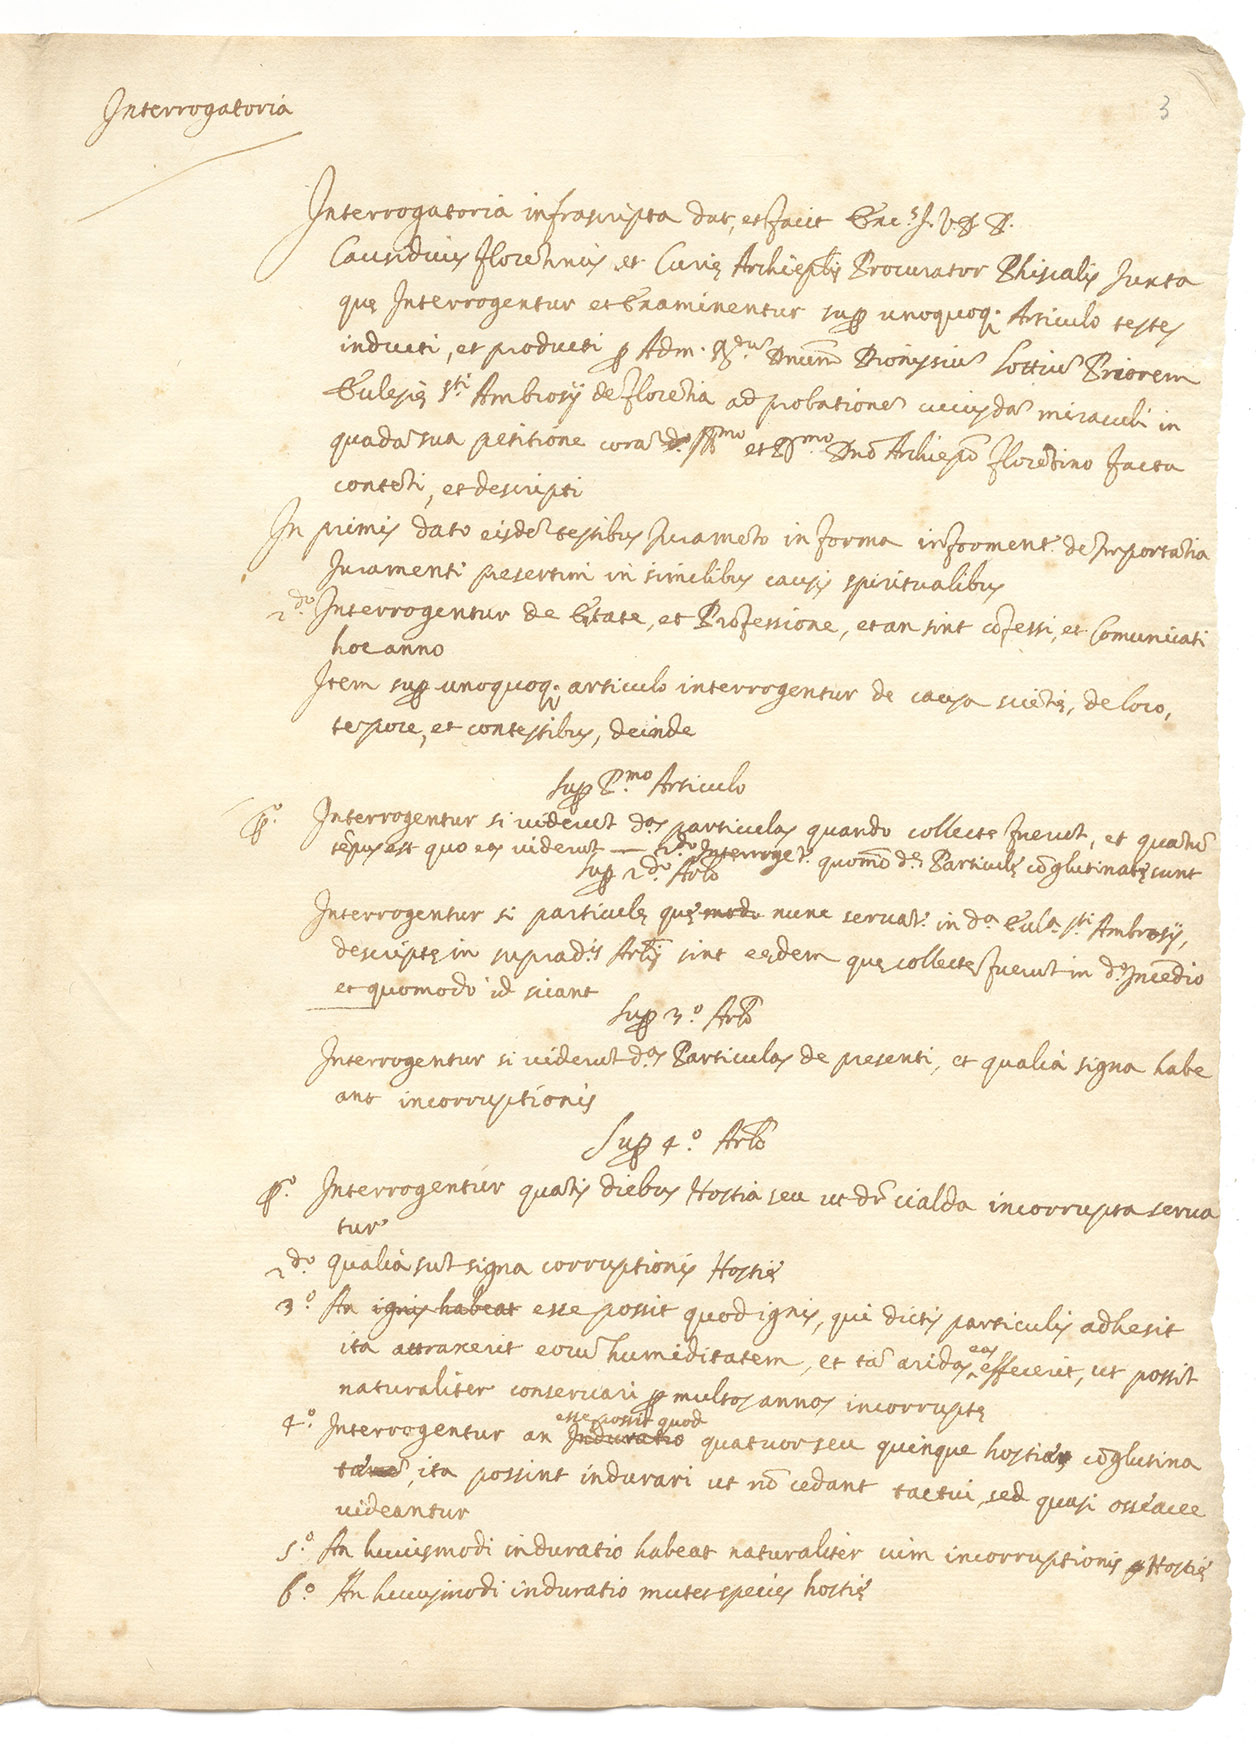 Interrogatoria
3
Interrogatoria infrascripta dat, et facit Exc.s J. V. D. D.
Causidicus florentinus et Curię Archiepĩlis Procurator Phiscalis Juxta
quę Interrogentur et Examinentur sup unoquoq; Articulo testes
inducti, et producti p Adm. R.dũ Dnum Dionysiũ Lottiũ Priorem
Eclesię S.ti Ambrosij de florẽtia ad probationẽ cuiusdã miraculi in
quadã sua petitione corã Ill.mo et R.mo Dno Archiepõ florẽtino facta
contẽti, et descripti
In primis dato eisdẽ testibus Juramẽto in forma informent.r de Importãtia
Juramenti presertim in similibus causis spiritualibus
2.do Interrogentur de Etate, et Professione, et an sint cõfessi, et Comunicati
hoc anno
Item sup unoquoq; articulo interrogentur de causa sciẽtię, de loco,
tẽpore, et contestibus, deinde
Sup P.mo Articulo
P.o Interrogentur si viderũt d.as particulas quando collecte fuerũt, et quãtũ
tẽpus est quo eas viderũt — 2.do Interroget.r quomõ d.e Particulę cõglutinatę sunt
Sup 2.do Artlo
Interrogentur si particulę quę modo nunc servãt.r in d.a Ecla S.ti Ambrosij,
descriptę in suprad.is Artlis sint eędem quę collectę fuerũt in d.o Incẽdio
et quomodo id sciant
Sup 3.o Artlo
Interrogentur si viderũt d.as Particulas de presenti, et qualia signa habe
ant incorruptionis
Sup 4.o Artlo
P.o Interrogentur quãtis diebus Hostia seu ut dr̃ cialda incorrupta serva
tur
2.do qualia sũt signa corruptionis Hostię
3.o An ignis habeat esse possit quod ignis, qui dictis particulis adhesit
ita attraxerit eorũ humiditatem, et tã aridas eas effecerit, ut possit
naturaliter conservari p multos annos incorruptę
4.o Interrogentur an Induratio esse possit quod quatuor seu quinque hostię cõglutina
, ita possint indurari ut nõ cedant tactui, sed quasi osseacee
videantur
5.o An huiusmodi induratio habeat naturaliter vim incorruptionis Hostię
6.o An huiusmodi induratio mutet species hostię